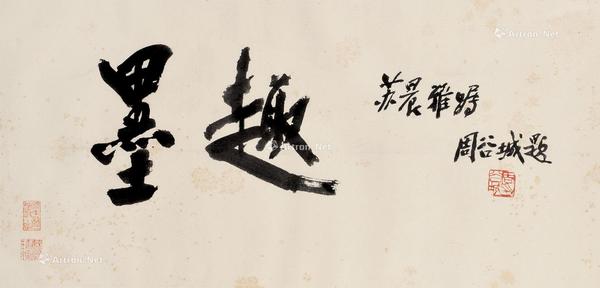 墨趣
苏晨雅嘱
周谷城题
Artron.Net
Artron.Net
Artron.Net